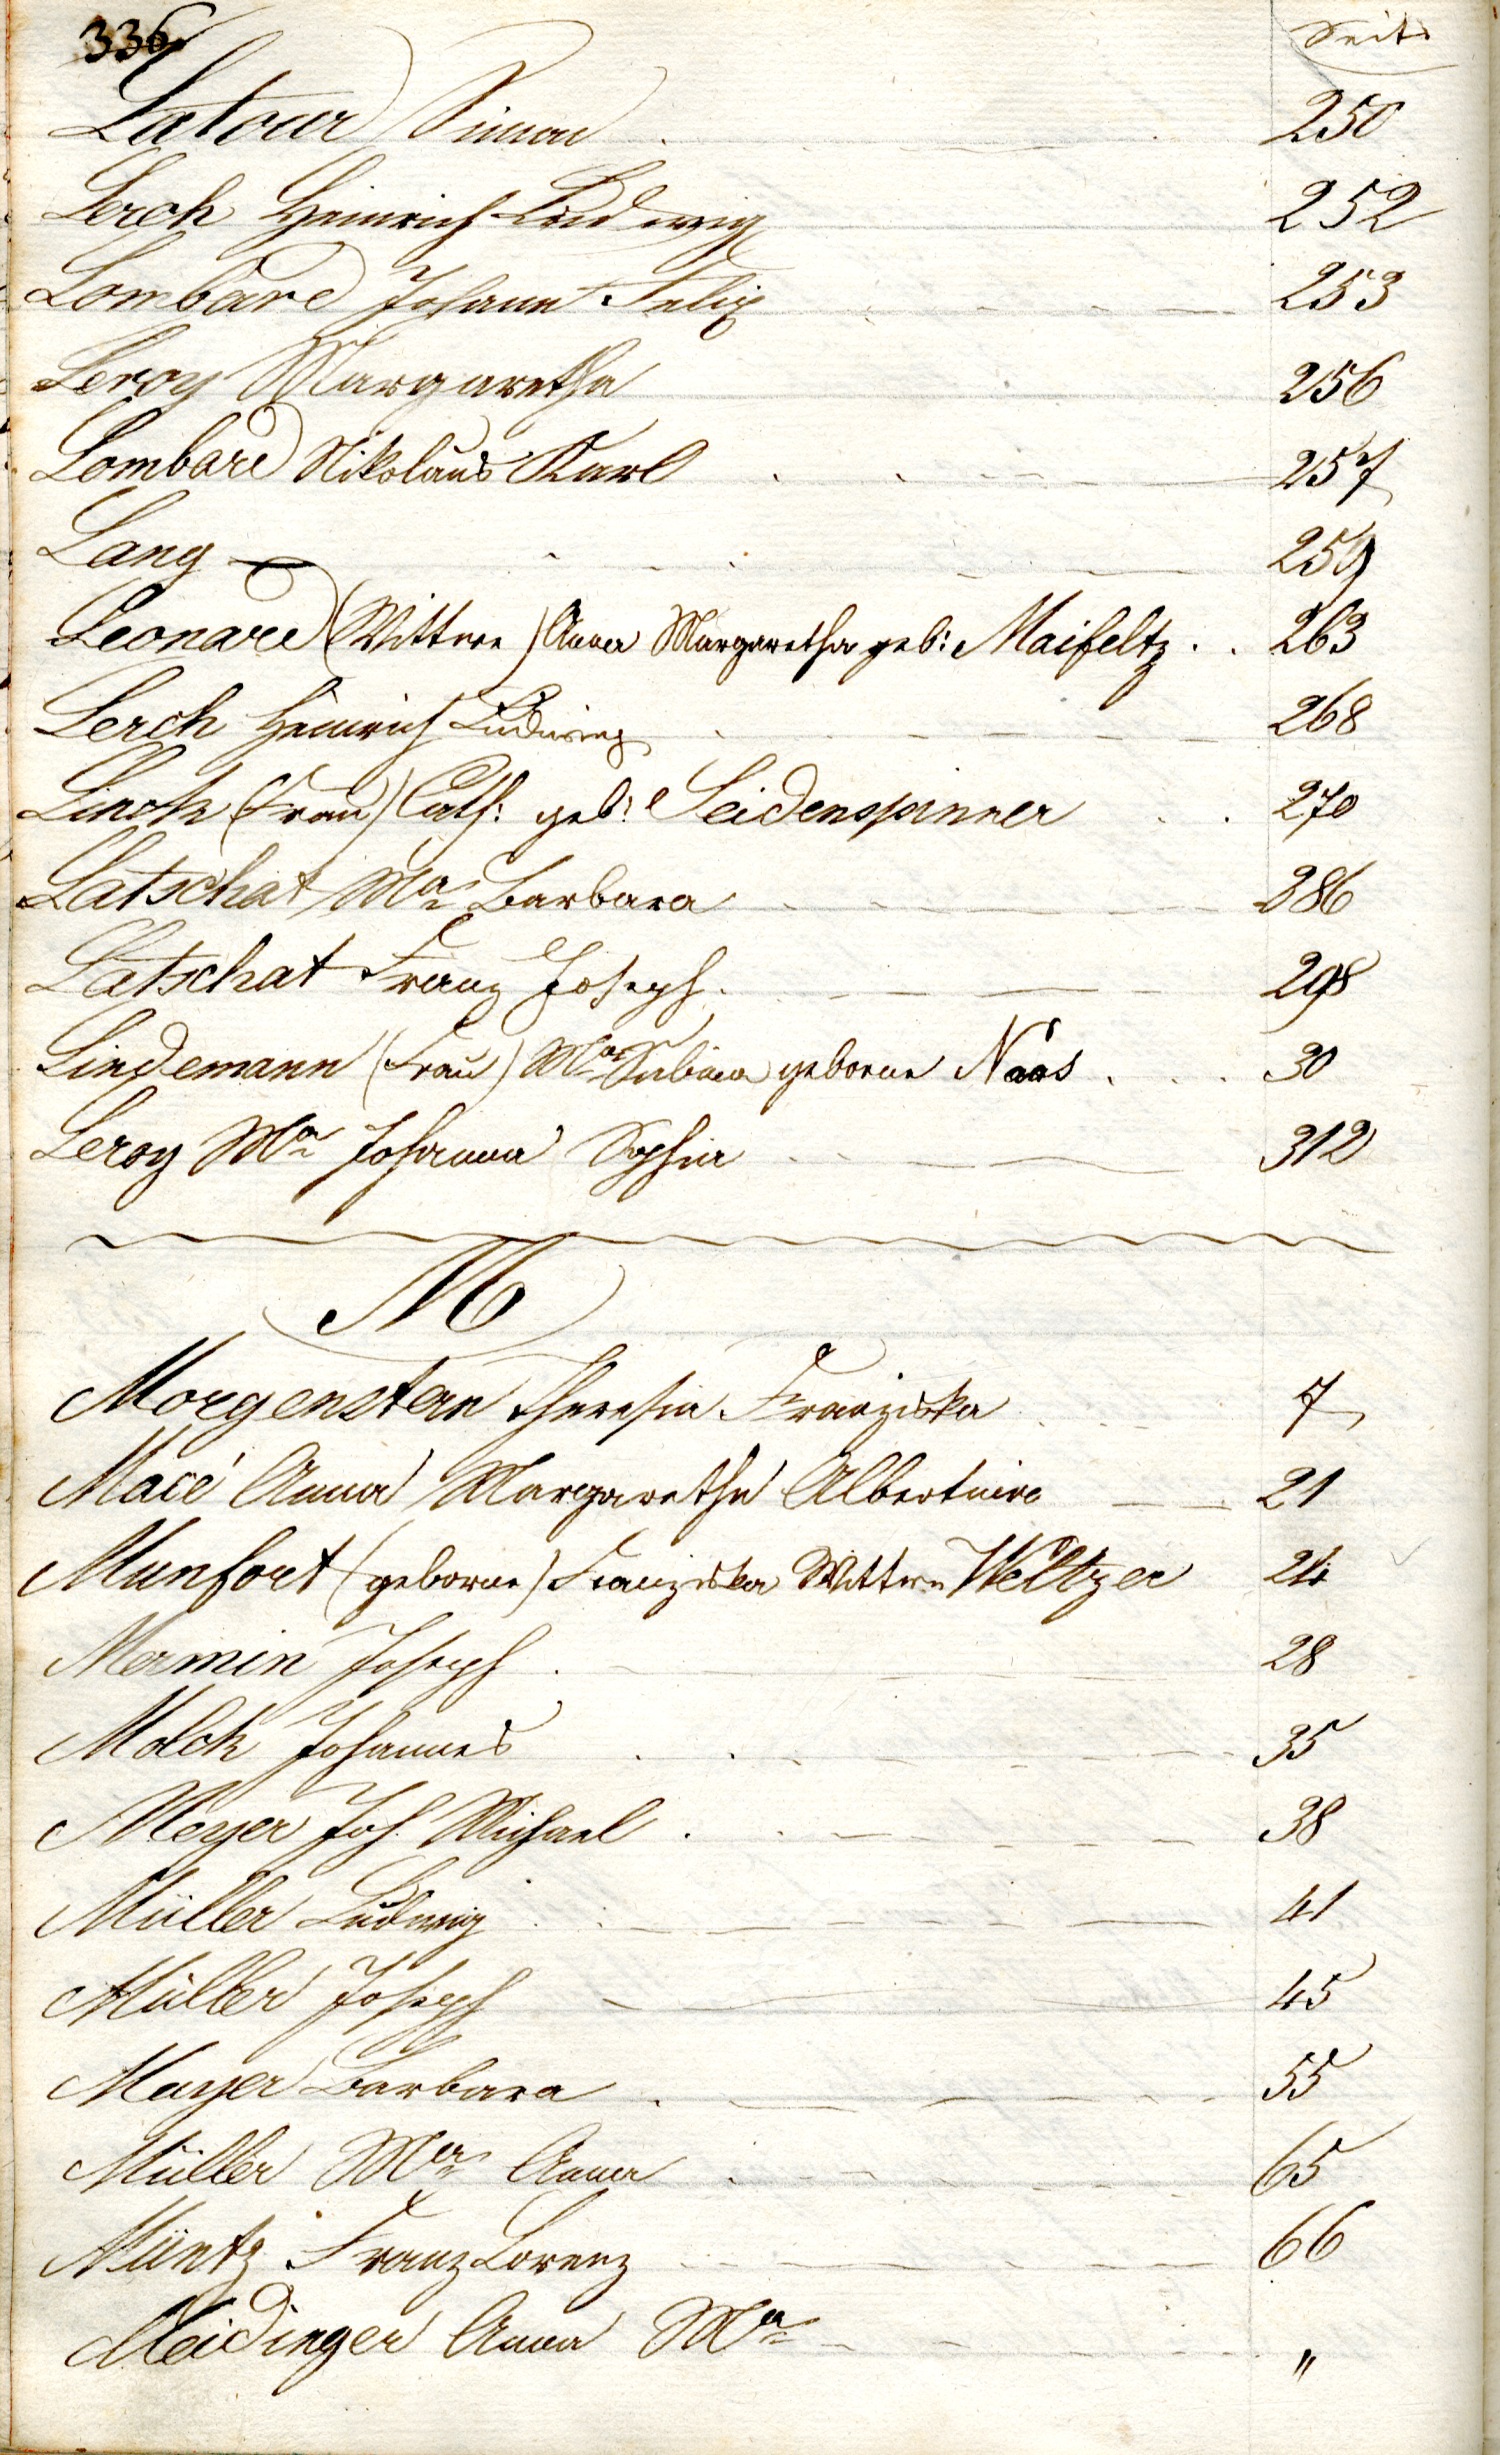 336
Seite
Latour Simon 250
Lerch Heinrich Ludwig 252
Lombard Johann Felix 253
Leroy Margaretha 256
Lombard Nikolaus Karl 257
Lang 259
Leonard (Wittwe) Anna Margaretha geb: Maifeltz 263
Lerch Heinrich Ludwig 268
Linck (Frau) Cath: geb: Seidenspinner 270
Latschat Ma Barbara 286
Latschat Franz Joseph 298
Lindemann (Frau) Ma Sabina geborne Naas 30
Leroy Ma Johanna Sophia 312
M
Morgenstern Theresia Franziska 7
Macé Anna Margaretha Albertine 21
Munfort (geborne) Franziska Wittwe Weltzer 24
Mermin Joseph 28
Molck Johannes 35
Meyer Joh. Michael 38
Müller Ludwig 41
Müller Joseph 45
Mayer Barbara 55
Müller Ma Anna 65
Müntz Franz Lorenz 66
Meidinger Anna Ma "